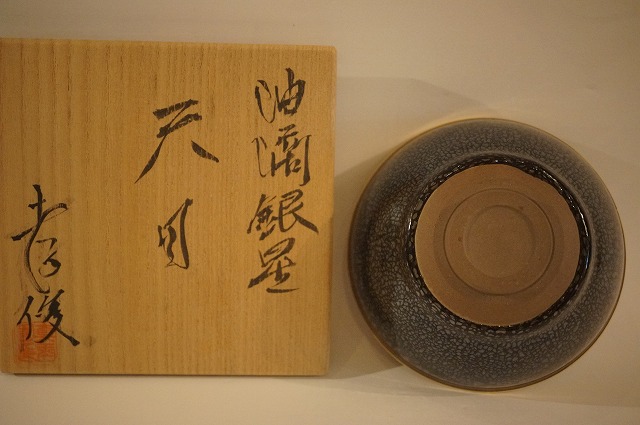 油滴銀星
天目
孝俊